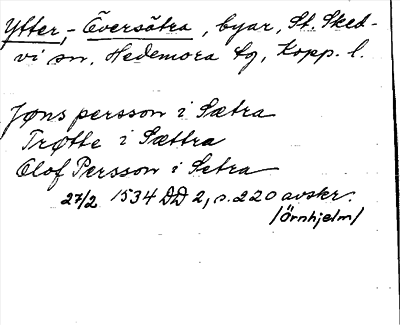 Ytter,- Översätra, byar, St. Sked-
vi sn, Hedemora tg, Kopp. l.
Jøns persson i Sætra
Trøtte i Sættra
Olof Persson i Setra
27/2 1534 DD 2, s. 220 avskr.
/Örnhjelm/